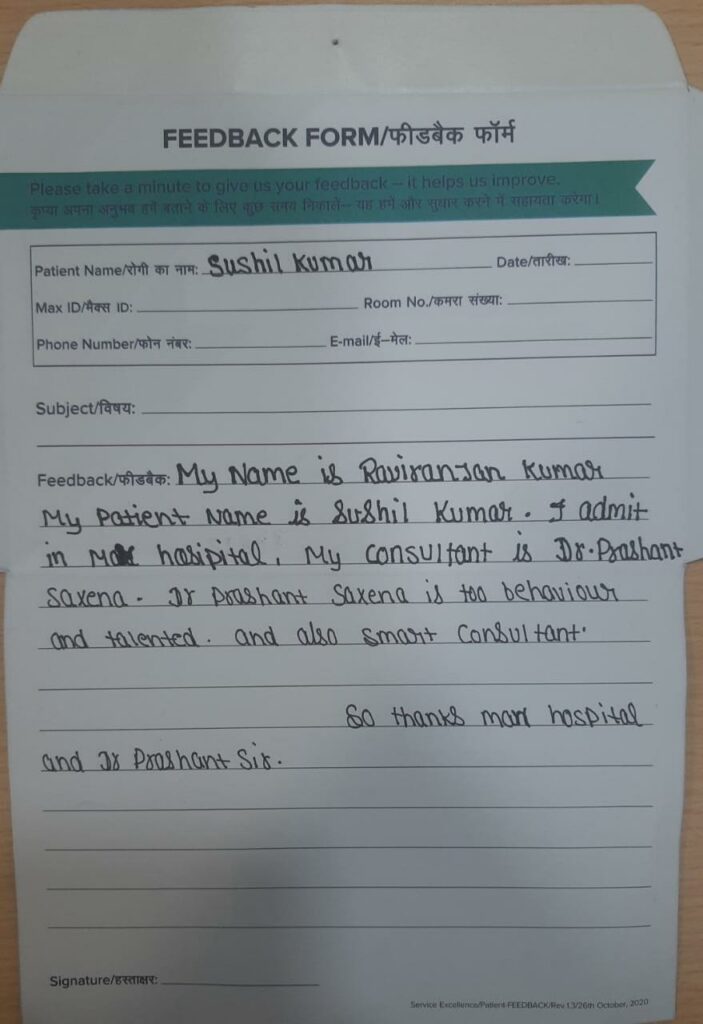 FEEDBACK FORM/फीडबैक फॉर्म
Please take a minute to give us your feedback – it helps us improve.
कृप्या अपना अनुभव हमें बताने के लिए कुछ समय निकालें– यह हमें और सुधार करने में सहायता करेगा।
Patient Name/रोगी का नाम: Sushil Kumar Date/तारीख:
Max ID/मैक्स ID: Room No./कमरा संख्या:
Phone Number/फोन नंबर: E-mail/ई–मेल:
Subject/विषय:
Feedback/फीडबैक: My Name is Raviranjan Kumar
My Patient Name is Sushil Kumar. I admit
in Max hasipital, My consultant is Dr. Prashant
Saxena. Dr Prashant Saxena is too behaviour
and talented. and also smart Consultant.
So thanks max hospital
and Dr Prashant Sir.
Signature/हस्ताक्षर:
Service Excellence/Patient-FEEDBACK/Rev 1.3/26th October, 2020